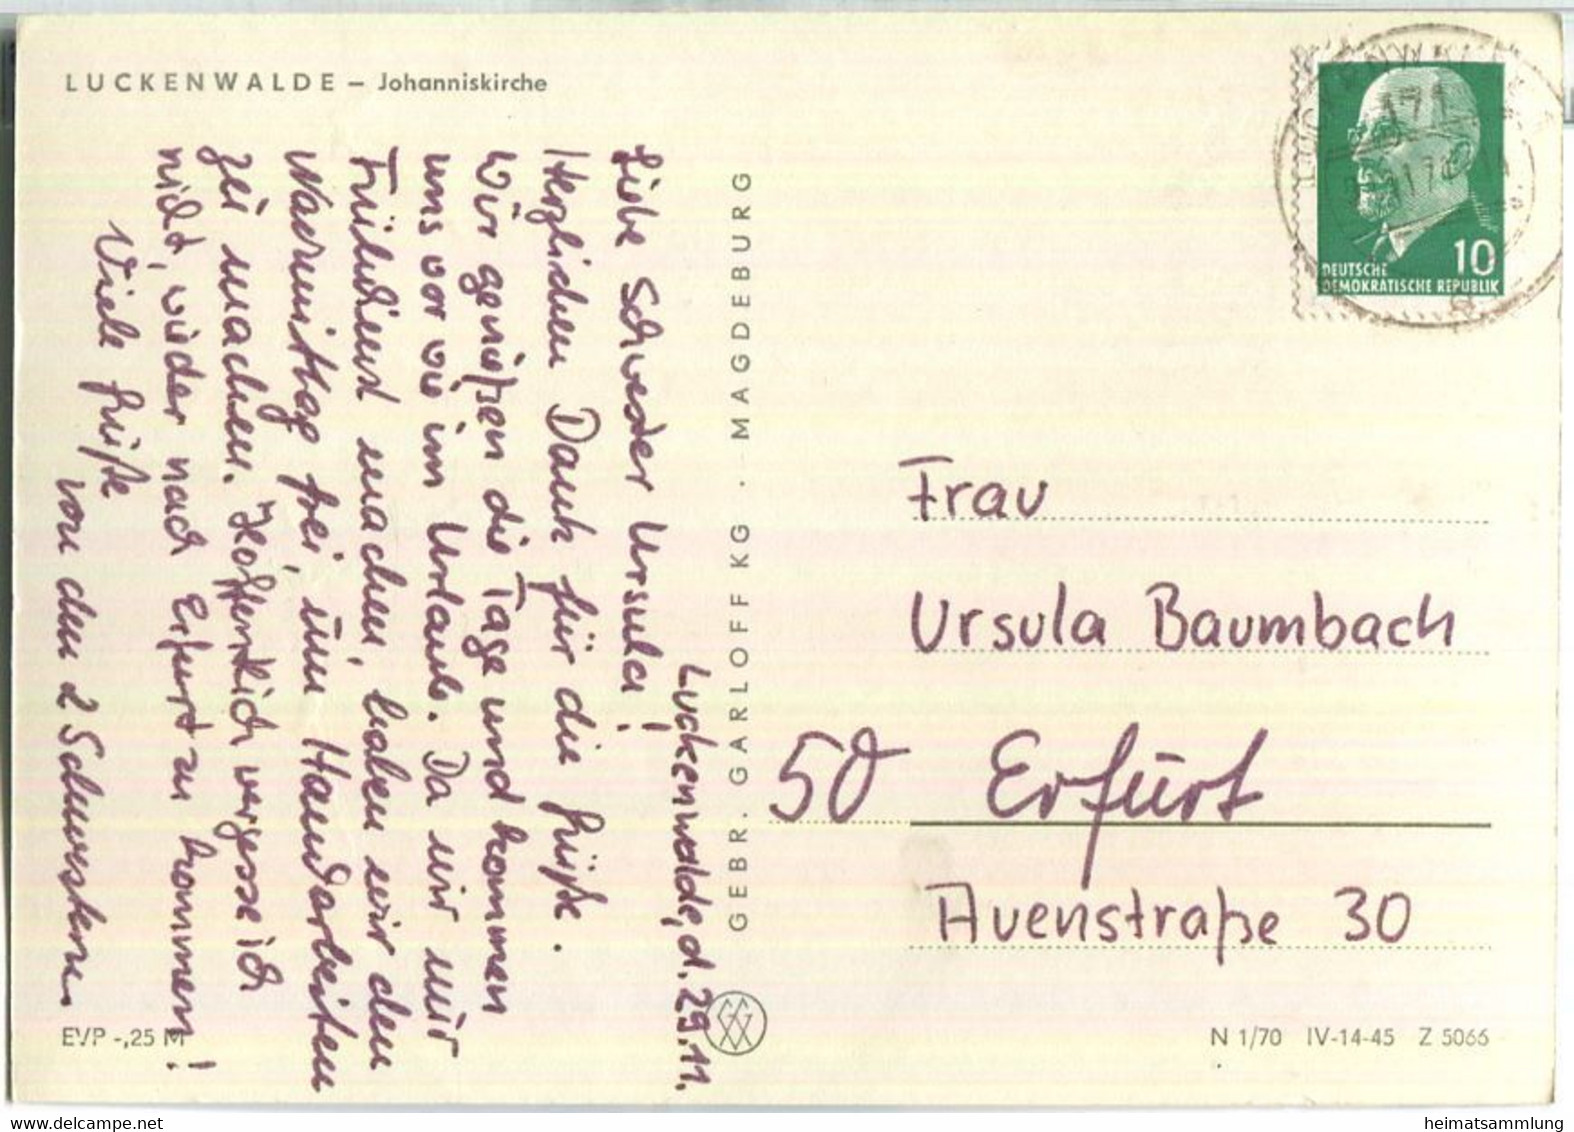 LUCKENWALDE – Johanniskirche
Luckenwalde, d. 29.11.
Liebe Schwester Ursula!
Herzlichen Dank für die Grüße.
Wir genießen die Tage und kommen
uns vor wie im Urlaub. Da wir nur
Frühdienst machen, haben wir den
Nachmittag frei, um Handarbeiten
zu machen. Hoffentlich vergesse ich
nicht, wieder nach Erfurt zu kommen!
Viele Grüße
von den 2 Schwestern.
GEBR. GARLOFF KG. MAGDEBURG
EVP -,25 M
171
10
DEUTSCHE
DEMOKRATISCHE REPUBLIK
Frau
Ursula Baumbach
50 Erfurt
Auenstraße 30
N 1/70 IV-14-45 Z 5066
heimatsammlung